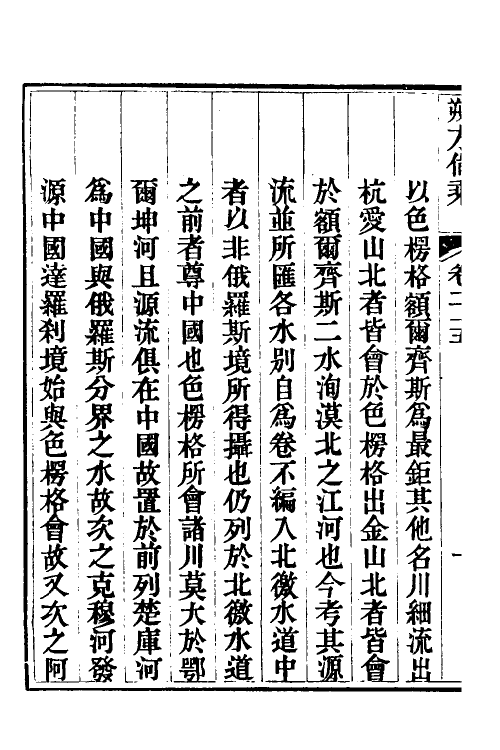 朔方備乘 卷二十五 一
以色楞格額爾齊斯爲最鉅其他名川細流出
杭愛山北者皆會於色楞格出金山北者皆會
於額爾齊斯二水洵漠北之江河也今考其源
流並所匯各水別自爲卷不編入北徼水道中
者以非俄羅斯境所得攝也仍列於北徼水道
之前者尊中國也色楞格所會諸川莫大於鄂
爾坤河且源流俱在中國故置於前列楚庫河
爲中國與俄羅斯分界之水故次之克穆河發
源中國達羅刹境始與色楞格會故又次之阿